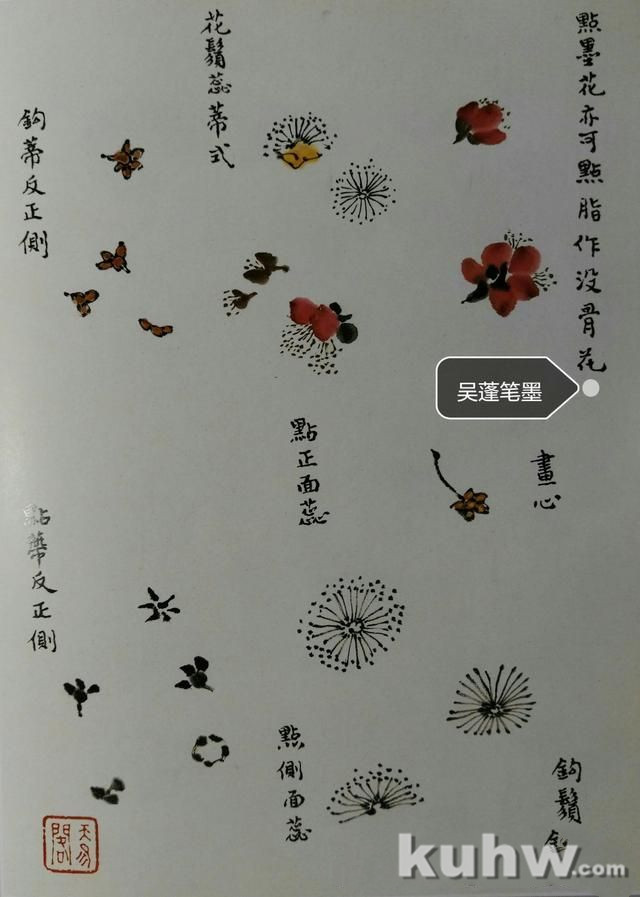 點墨花亦可點脂作没骨花
花鬚蕊蒂式
鈎蒂反正側
吴蓬笔墨
畫心
點正面蕊
點蒂反正側
鈎鬚
點側面蕊
天易閣
kuhw.com